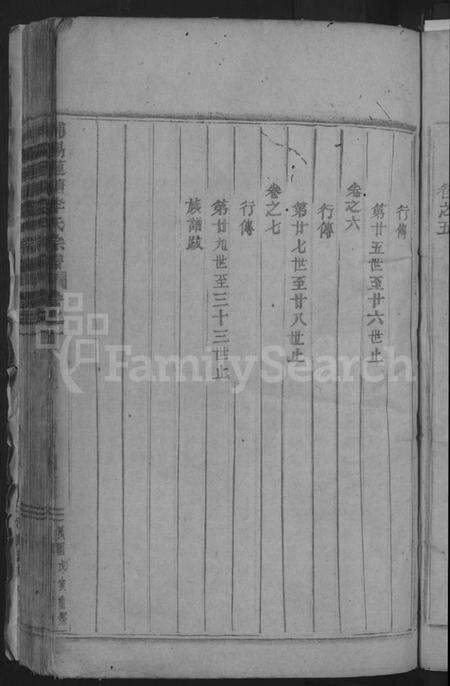 卷之五
行傳
第廿五世至廿六世止
卷之六
行傳
第廿七世至廿八世止
卷之七
行傳
第廿九世至三十三世止
族譜跋
FamilySearch